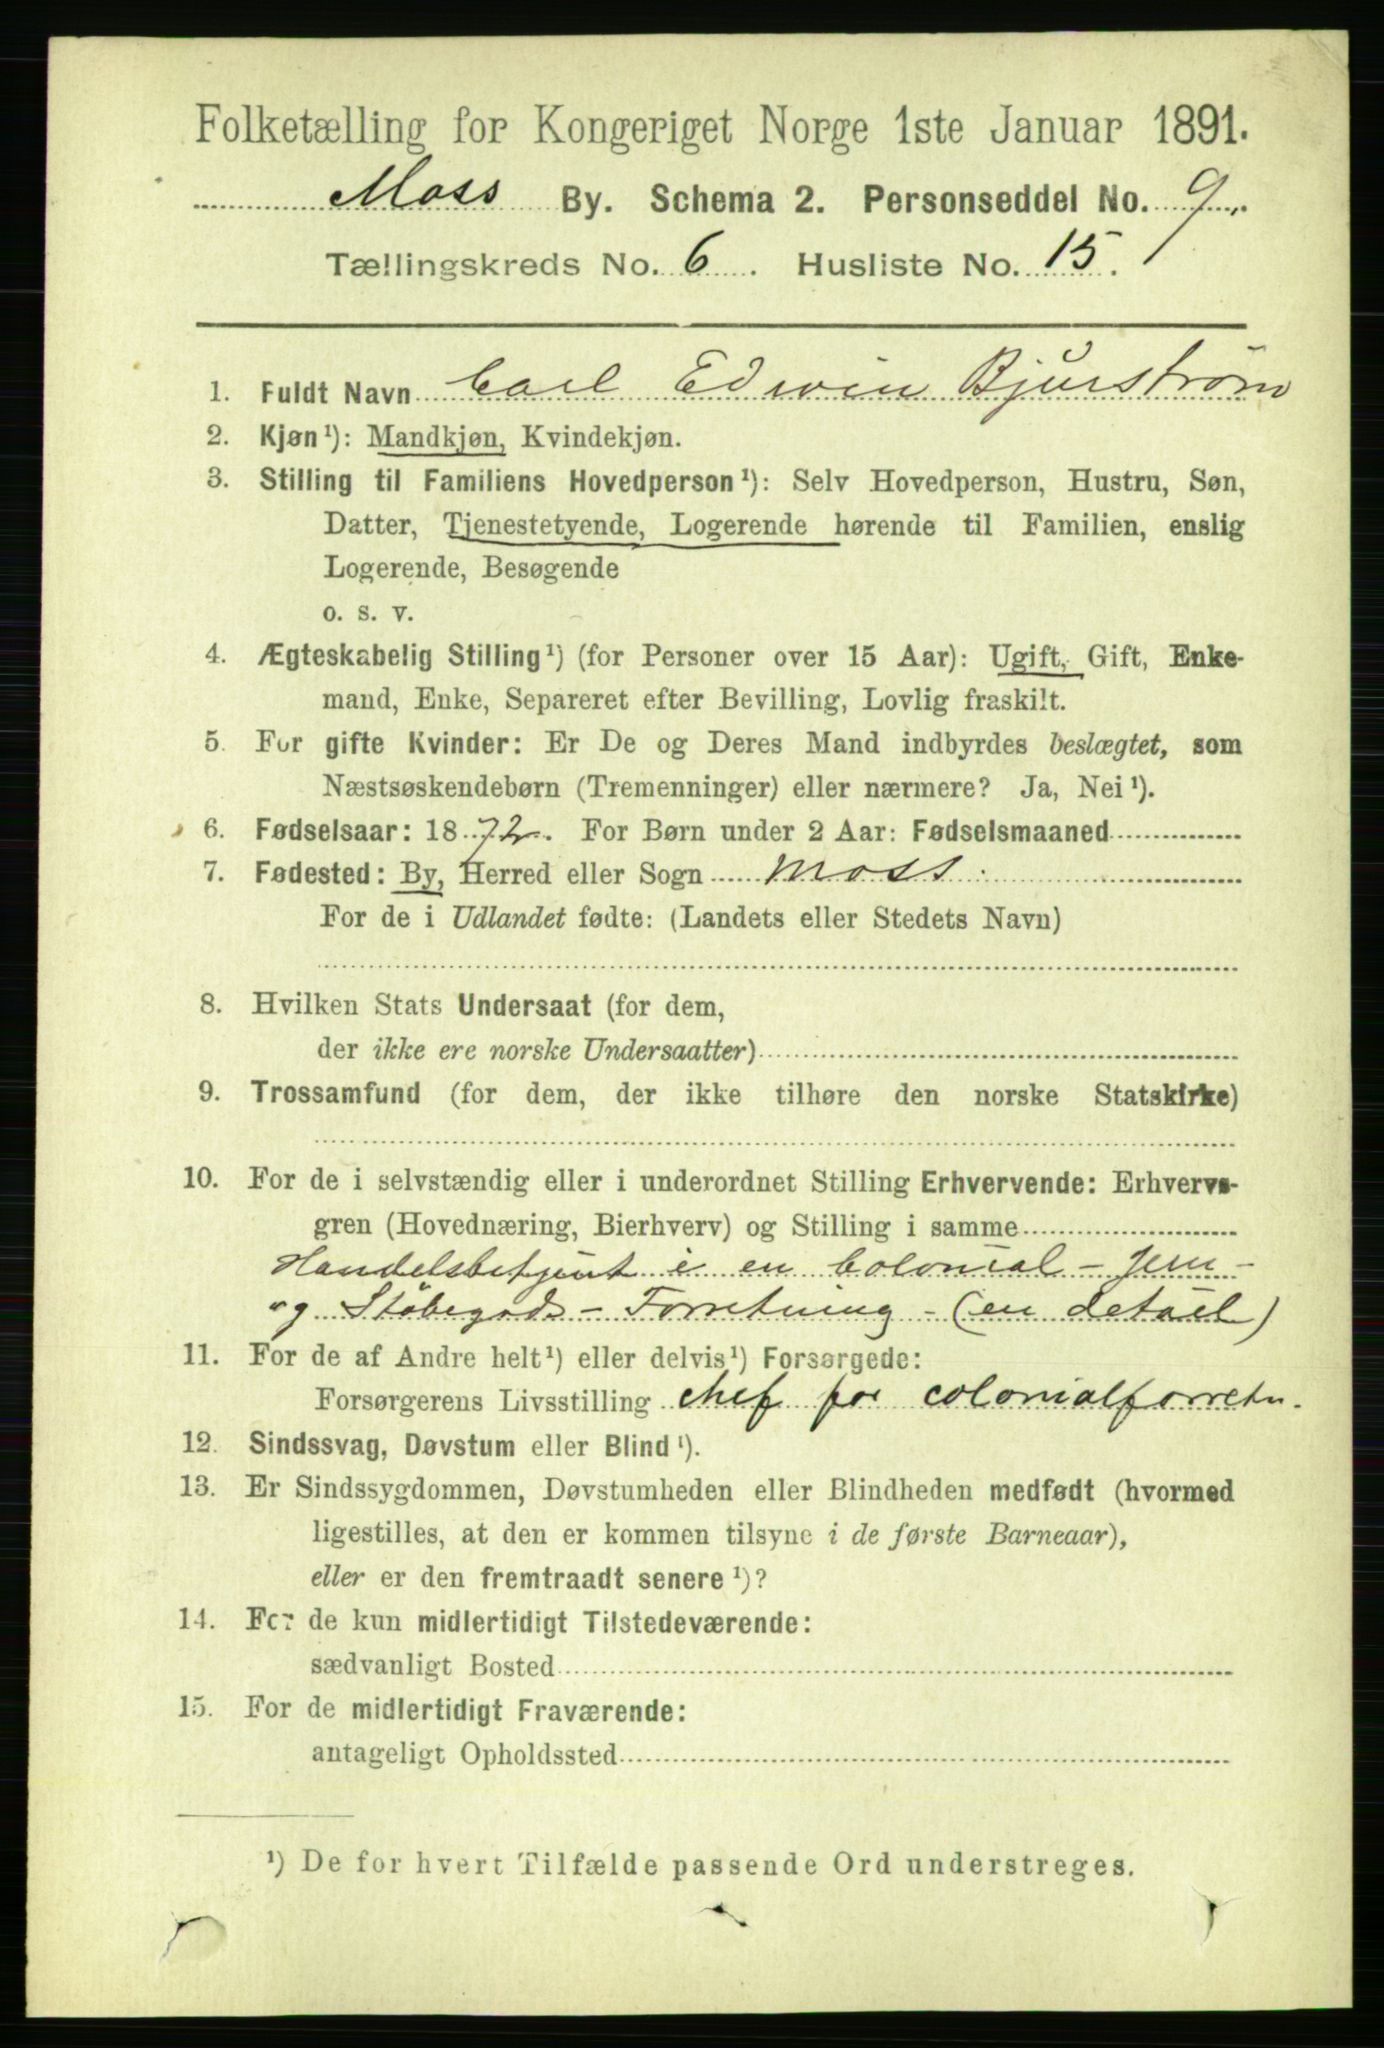 Folketælling for Kongeriget Norge 1ste Januar 1891.
Moss By. Schema 2. Personseddel No. 9.
Tællingskreds No. 6. Husliste No. 15.
1. Fuldt Navn Carl Edwin Bjurstrøm
2. Kjøn¹): Mandkjøn, Kvindekjøn.
3. Stilling til Familiens Hovedperson¹): Selv Hovedperson, Hustru, Søn,
Datter, Tjenestetyende, Logerende hørende til Familien, enslig
Logerende, Besøgende
o. s. v.
4. Ægteskabelig Stilling¹) (for Personer over 15 Aar): Ugift, Gift, Enke-
mand, Enke, Separeret efter Bevilling, Lovlig fraskilt.
5. For gifte Kvinder: Er De og Deres Mand indbyrdes beslægtet, som
Næstsøskendebørn (Tremenninger) eller nærmere? Ja, Nei¹).
6. Fødselsaar: 1872. For Børn under 2 Aar: Fødselsmaaned
7. Fødested: By, Herred eller Sogn Moss.
For de i Udlandet fødte: (Landets eller Stedets Navn)
8. Hvilken Stats Undersaat (for dem,
der ikke ere norske Undersaatter)
9. Trossamfund (for dem, der ikke tilhøre den norske Statskirke)
10. For de i selvstændig eller i underordnet Stilling Erhvervende: Erhvervs-
gren (Hovednæring, Bierhverv) og Stilling i samme
Handelsbetjent i en Colonial - Jern -
og Stöbegods - Forretning - (en detail)
11. For de af Andre helt¹) eller delvis¹) Forsørgede:
Forsørgerens Livsstilling chef for colonialforretn.
12. Sindssvag, Døvstum eller Blind¹).
13. Er Sindssygdommen, Døvstumheden eller Blindheden medfødt (hvormed
ligestilles, at den er kommen tilsyne i de første Barneaar),
eller er den fremtraadt senere¹)?
14. For de kun midlertidigt Tilstedeværende:
sædvanligt Bosted
15. For de midlertidigt Fraværende:
antageligt Opholdssted
¹) De for hvert Tilfælde passende Ord understreges.